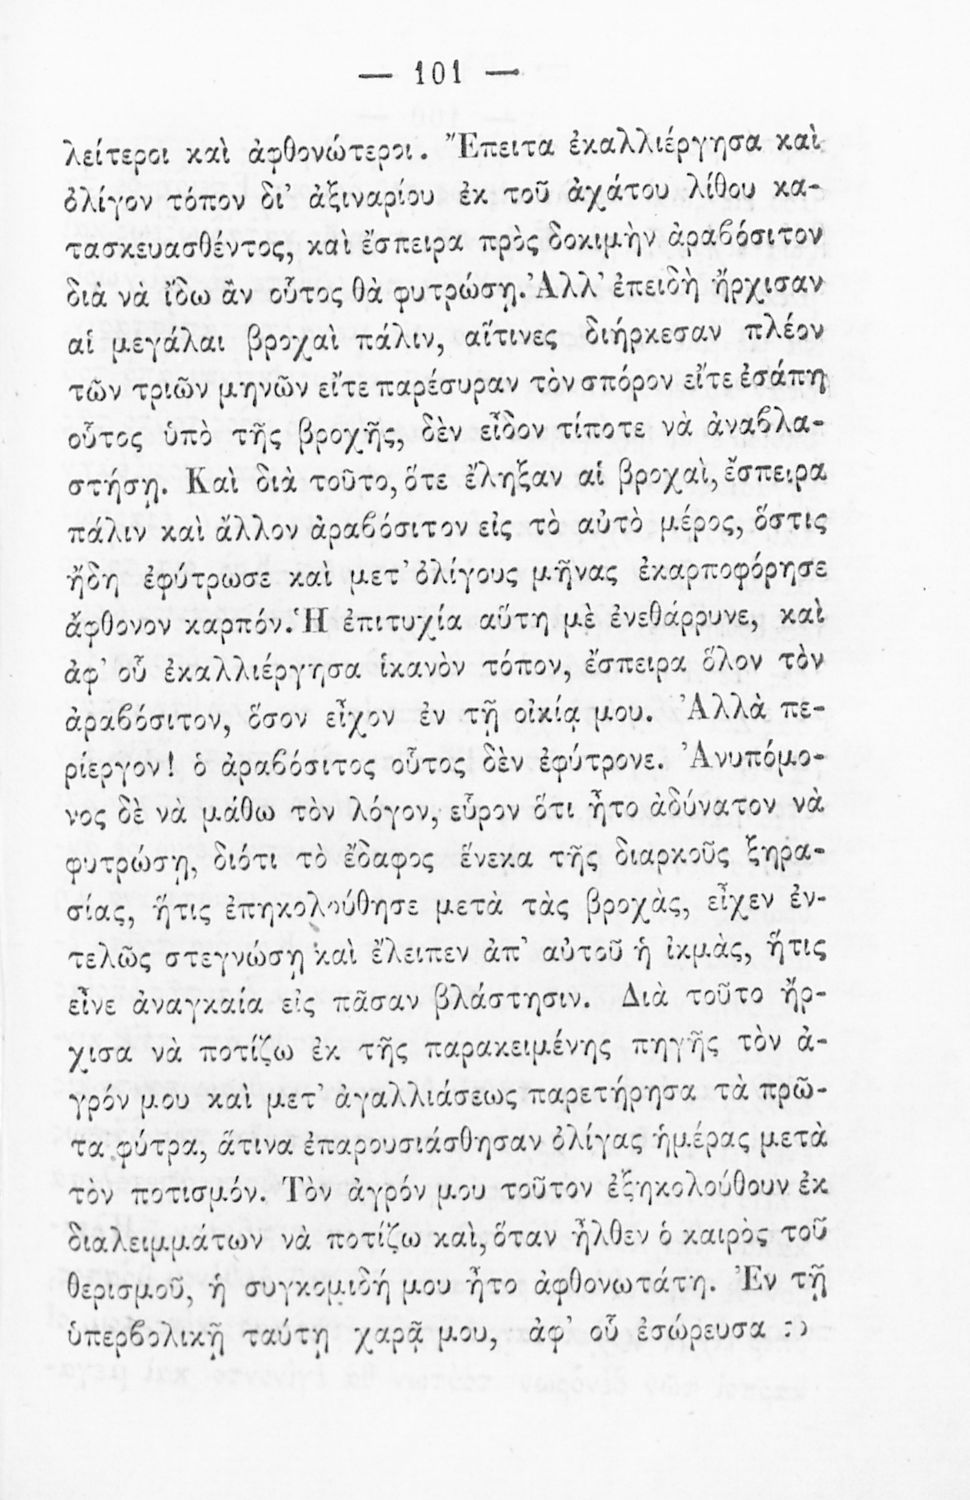 — 101 —
λείτεροι καὶ ἀφθονώτεροι. Ἔπειτα ἐκαλλιέργησα καὶ
ὀλίγον τόπον δι’ ἀξιναρίου ἐκ τοῦ ἀχάτου λίθου κα-
τασκευασθέντος, καὶ ἔσπειρα πρὸς δοκιμὴν ἀραβόσιτον
διὰ νὰ ἴδω ἂν οὗτος θὰ φυτρώσῃ. Ἀλλ’ ἐπειδὴ ἤρχισαν
αἱ μεγάλαι βροχαὶ πάλιν, αἵτινες διήρκεσαν πλέον
τῶν τριῶν μηνῶν εἴτε παρέσυραν τὸν σπόρον εἴτε ἐσάπη
οὗτος ὑπὸ τῆς βροχῆς, δὲν εἶδον τίποτε νὰ ἀναβλα-
στήσῃ. Καὶ διὰ τοῦτο, ὅτε ἔληξαν αἱ βροχαὶ, ἔσπειρα
πάλιν καὶ ἄλλον ἀραβόσιτον εἰς τὸ αὐτὸ μέρος, ὅστις
ἤδη ἐφύτρωσε καὶ μετ’ ὀλίγους μῆνας ἐκαρποφόρησε
ἄφθονον καρπόν. Ἡ ἐπιτυχία αὕτη μὲ ἐνεθάρρυνε, καὶ
ἀφ’ οὗ ἐκαλλιέργησα ἱκανὸν τόπον, ἔσπειρα ὅλον τὸν
ἀραβόσιτον, ὅσον εἶχον ἐν τῇ οἰκίᾳ μου. Ἀλλὰ πε-
ρίεργον! ὁ ἀραβόσιτος οὗτος δὲν ἐφύτρονε. Ἀνυπόμο-
νος δὲ νὰ μάθω τὸν λόγον, εὗρον ὅτι ἦτο ἀδύνατον νὰ
φυτρώσῃ, διότι τὸ ἔδαφος ἕνεκα τῆς διαρκοῦς ξηρα-
σίας, ἥτις ἐπηκολούθησε μετὰ τὰς βροχὰς, εἶχεν ἐν-
τελῶς στεγνώσῃ καὶ ἔλειπεν ἀπ’ αὐτοῦ ἡ ἰκμὰς, ἥτις
εἶνε ἀναγκαία εἰς πᾶσαν βλάστησιν. Διὰ τοῦτο ἤρ-
χισα νὰ ποτίζω ἐκ τῆς παρακειμένης πηγῆς τὸν ἀ-
γρόν μου καὶ μετ’ ἀγαλλιάσεως παρετήρησα τὰ πρῶ-
τα φύτρα, ἅτινα ἐπαρουσιάσθησαν ὀλίγας ἡμέρας μετὰ
τὸν ποτισμόν. Τὸν ἀγρόν μου τοῦτον ἐξηκολούθουν ἐκ
διαλειμμάτων νὰ ποτίζω καὶ, ὅταν ἦλθεν ὁ καιρὸς τοῦ
θερισμοῦ, ἡ συγκομιδή μου ἦτο ἀφθονωτάτη. Ἐν τῇ
ὑπερβολικῇ ταύτῃ χαρᾷ μου, ἀφ’ οὗ ἐσώρευσα